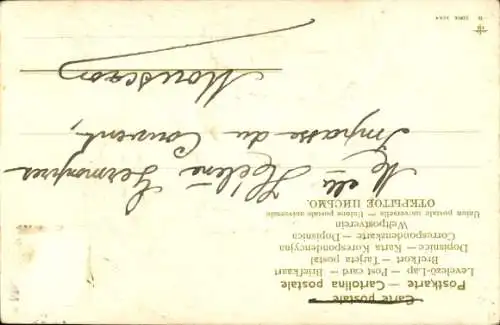 Carte postale
Postkarte — Cartolina postale
Levelező-Lap — Post card — Briefkaart
Brefkort — Tarjeta postal
Dopisnice — Karta Korespondencyjna
Correspondenzkarte — Dopisnica
Weltpostverein
Union postale universelle — Unione postale universale
ОТКРЫТОЕ ПИСЬМО.
Hélène
Impasse du Couvent,
Mouscron